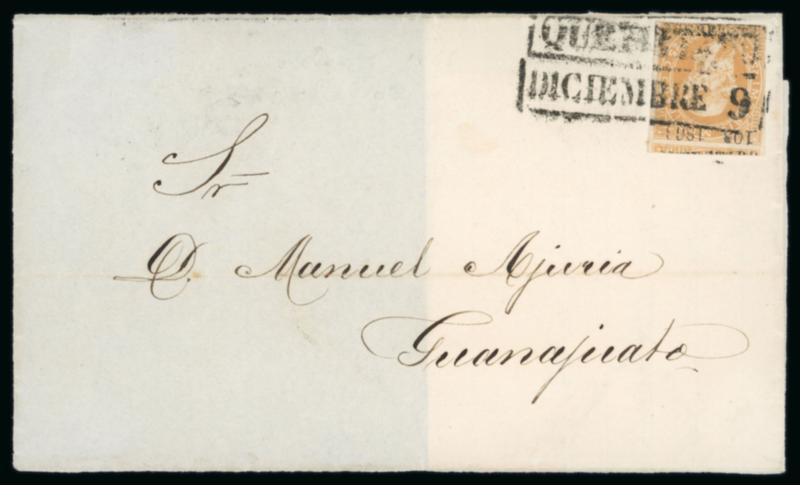 DICIEMBRE 9
Sr
D. Manuel Ajuria
Guanajuato